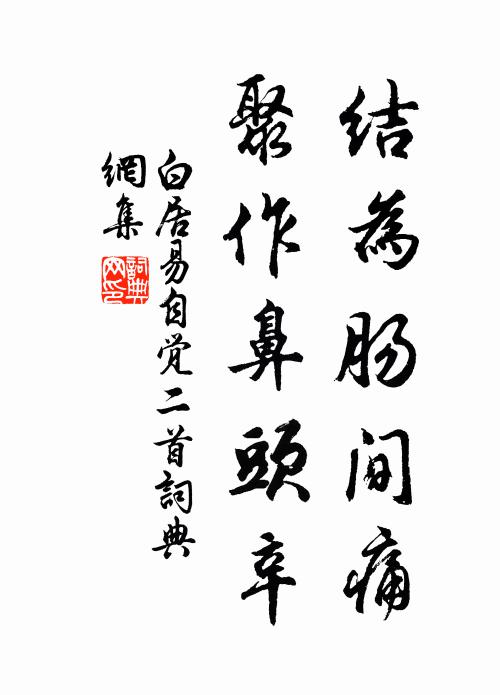 結為肠間痛
聚作鼻頭辛
白居易自觉二首詞典
網集
詞典
网印